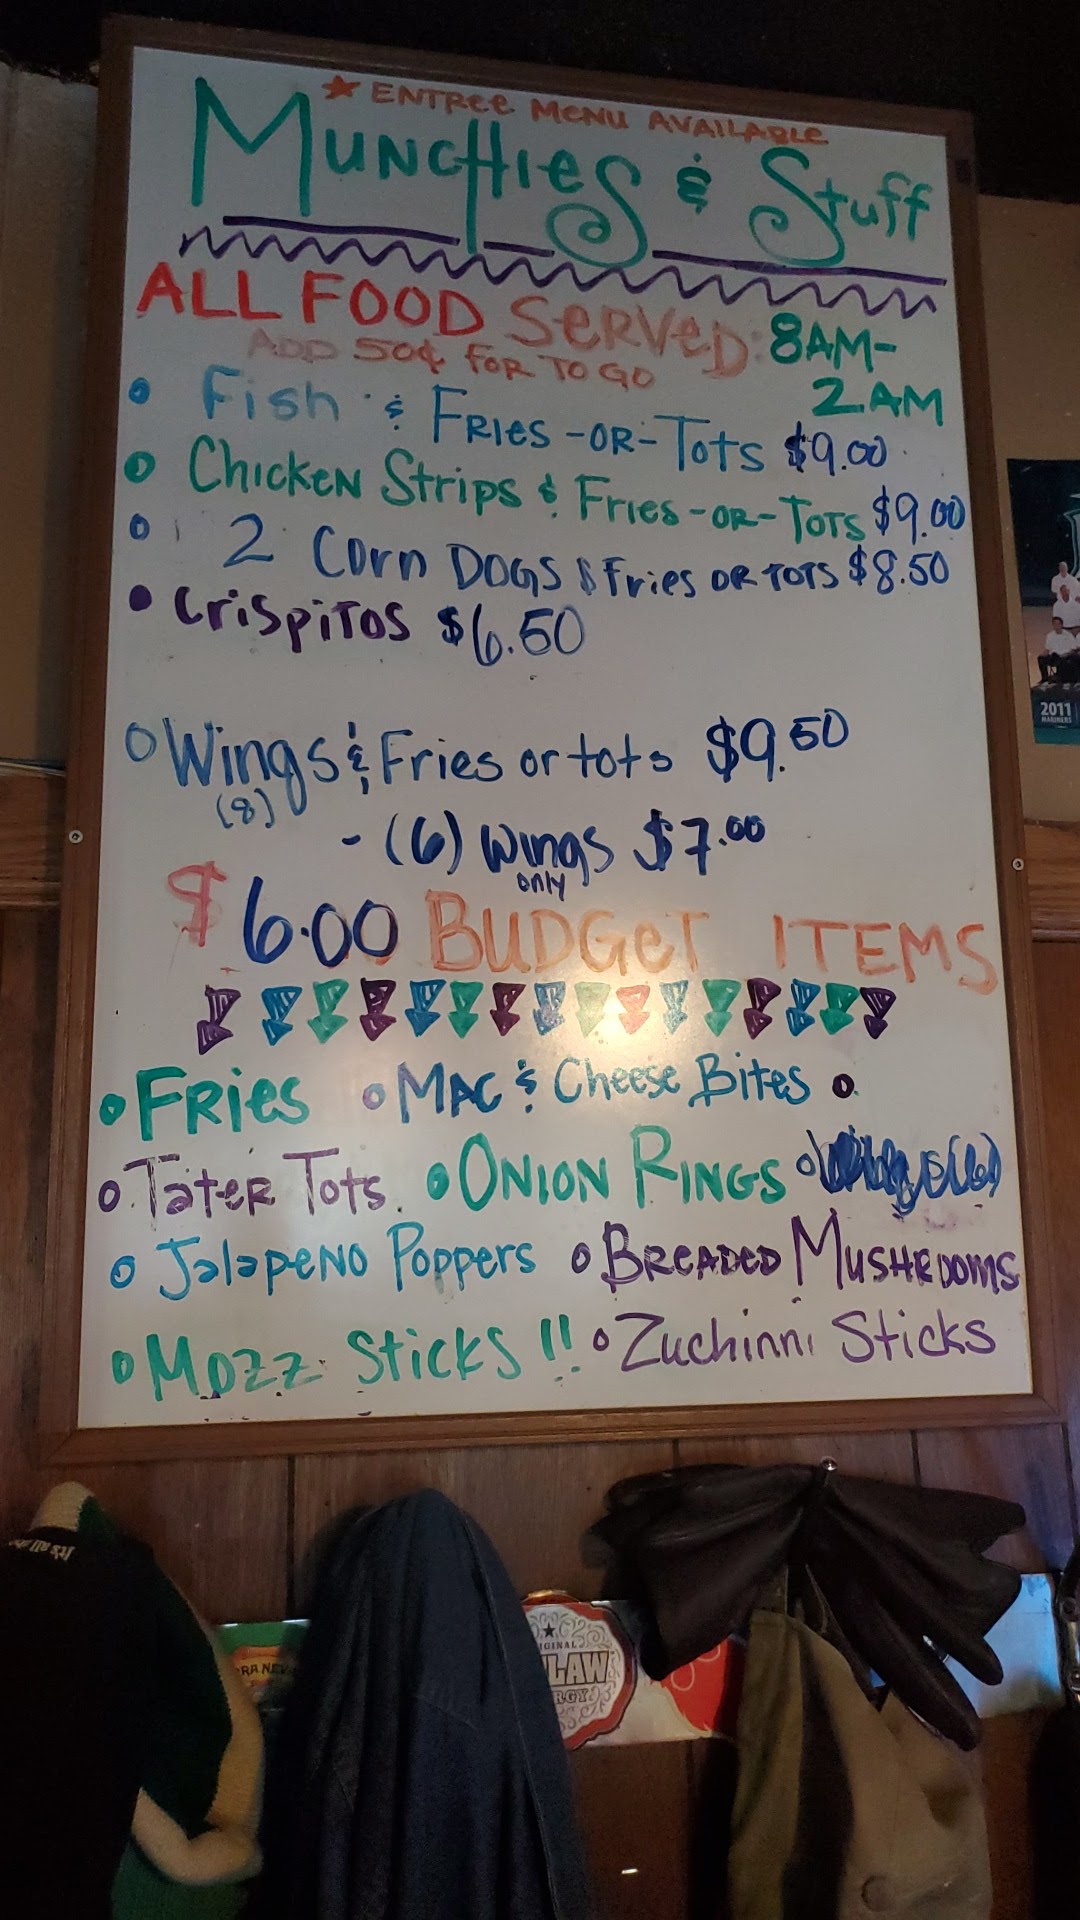 ★ ENTREE MENU AVAILABLE
MUNCHIES & Stuff
ALL FOOD SERVED: 8AM-
2AM
ADD 50¢ FOR TO GO
• Fish & FRIES -OR- TOTS $9.00
• CHICKEN Strips & FRIES -OR- TOTS $9.00
• 2 Corn DOGS & Fries OR TOTS $8.50
• CrispiTOS $6.50
• Wings & Fries or tots $9.50
(8)
- (6) Wings $7.00
only
$6.00 BUDGET ITEMS
• FRIES • MAC & Cheese Bites •
• TaTER TOTS • ONION RINGS •
• JalapeNO Poppers • BREADED MUSHROOMS
• MOZZ STICKS !! • Zuchinni Sticks
2011
MARINERS
It's all
RA NEV
IGINAL
LAW
RGY